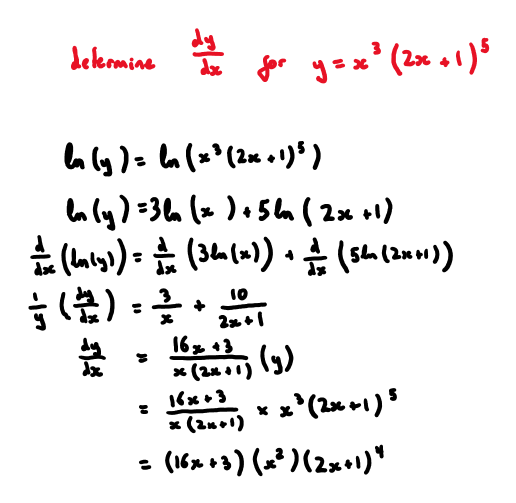 determine dy/dx for y = x³(2x+1)⁵
ln(y) = ln(x³(2x+1)⁵)
ln(y) = 3ln(x) + 5ln(2x+1)
d/dx (ln(y)) = d/dx (3ln(x)) + d/dx (5ln(2x+1))
1/y (dy/dx) = 3/x + 10/(2x+1)
dy/dx = (16x+3)/(x(2x+1)) (y)
= (16x+3)/(x(2x+1)) × x³(2x+1)⁵
= (16x+3)(x²)(2x+1)⁴